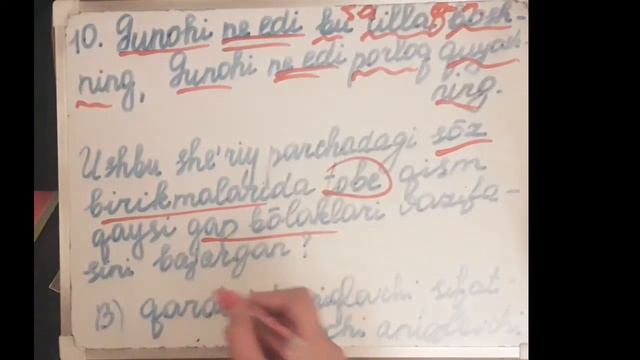 10. Gunohi ne edi bu tilla bosh-
ning, Gunohi ne edi porloq quyosh-
ning.
Ushbu she'riy parchadagi sōz
birikmalarida tobe qism
qaysi gap bōlaklari vazifa-
sini bajargan?
B) sifat-